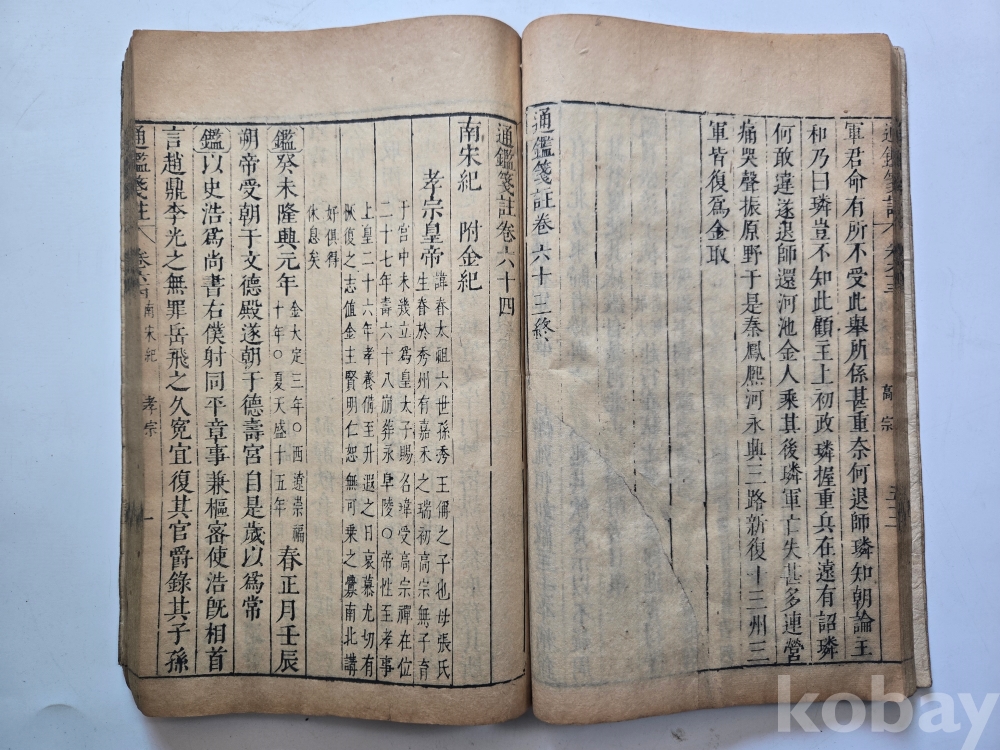 通鑑箋註 卷六十三 高宗 五三
軍君命有所不受此舉所係甚重奈何退師璘知朝論主
和乃曰璘豈不知此顧主上初政璘握重兵在遠有詔璘
何敢違遂退師還河池金人乘其後璘軍亡失甚多連營
痛哭聲振原野于是秦鳳熈河永興三路新復十三州三
軍皆復爲金取
通鑑箋註卷六十三終
通鑑箋註卷六十四
南宋紀 附金紀
孝宗皇帝
諱眘太祖六世孫秀王偁之子也母張氏
生眘於秀州有嘉禾之瑞初高宗無子育
于宮中未幾立爲皇太子賜名瑋受高宗禪在位
二十七年壽六十八崩葬永阜陵○帝性至孝事
上皇二十六年孝養備至升遐之日哀慕尤切有
恢復之志值金主賢明仁恕無可乗之釁南北講
好俱得
休息矣
鑑癸未隆興元年
金大定三年○西遼崇福
十年○夏天盛十五年
春正月壬辰
朔帝受朝于文德殿遂朝于德壽宮自是歲以爲常
鑑以史浩爲尚書右僕射同平章事兼樞密使浩旣相首
言趙鼎李光之無罪岳飛之久寃宜復其官爵錄其子孫
通鑑箋註 卷六十四 南宋紀 孝宗 一
kobay